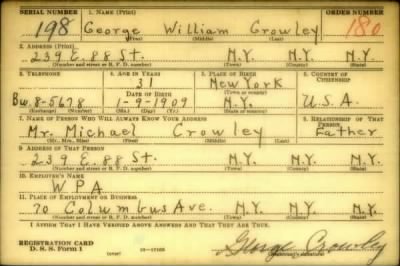 SERIAL NUMBER 1. NAME (Print) ORDER NUMBER
198 George William Crowley 180
(First) (Middle) (Last)
2. ADDRESS (Print)
239 E. 88 St. N.Y. N.Y.
(Number and street or R. F. D. number) (Town) (County) (State)
3. TELEPHONE 4. AGE IN YEARS 5. PLACE OF BIRTH 6. COUNTRY OF CITIZENSHIP
31 New York
DATE OF BIRTH (Town or county)
Bu. 8-5678 1-9-1909 N.Y. U.S.A.
(Exchange) (Number) (Mo.) (Day) (Yr.) (State or country)
7. NAME OF PERSON WHO WILL ALWAYS KNOW YOUR ADDRESS 8. RELATIONSHIP OF THAT PERSON
Mr. Michael Crowley Father
(Mr., Mrs., Miss) (First) (Middle) (Last)
9. ADDRESS OF THAT PERSON
239 E. 88 St. N.Y. N.Y.
(Number and street or R. F. D. number) (Town) (County) (State)
10. EMPLOYER'S NAME
WPA
11. PLACE OF EMPLOYMENT OR BUSINESS
70 Columbus Ave. N.Y. N.Y.
(Number and street or R. F. D. number) (Town) (County) (State)
I AFFIRM THAT I HAVE VERIFIED ABOVE ANSWERS AND THAT THEY ARE TRUE.
REGISTRATION CARD
D. S. S. Form 1 (over) George Crowley
(Registrant's signature)